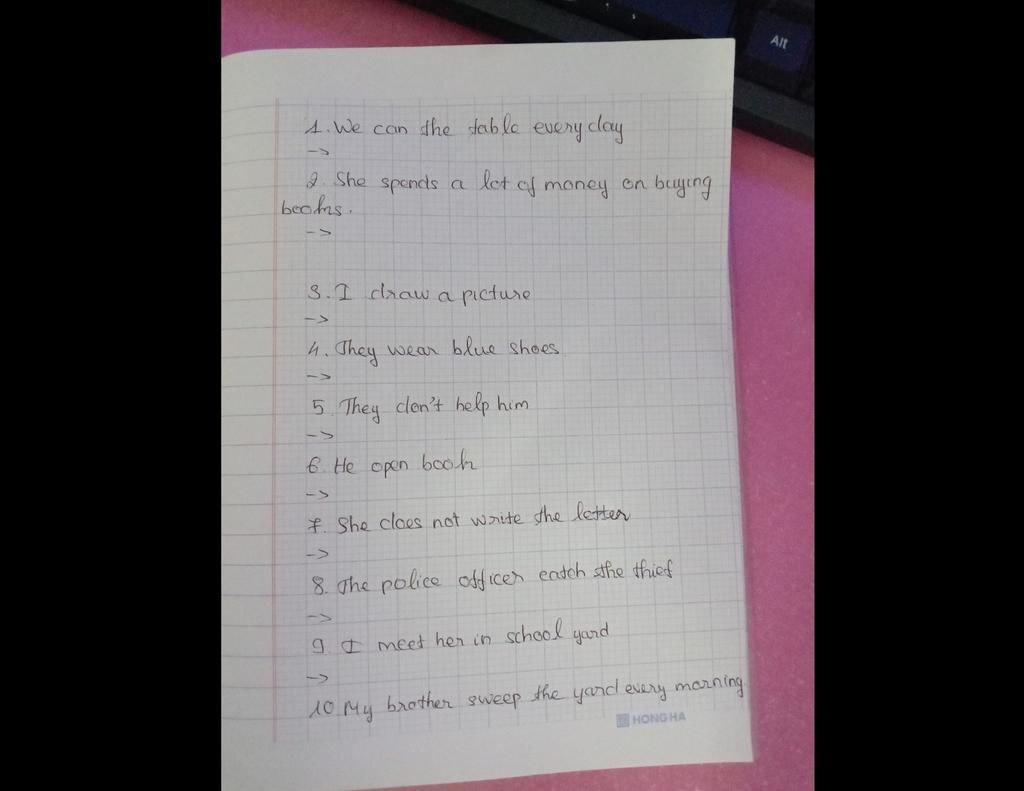 Alt
1. We can the table every day
->
2. She spends a lot of money on buying
books.
->
3. I draw a picture
->
4. They wear blue shoes
->
5. They don't help him
->
6. He open book
->
7. She does not write the letter
->
8. The police officer catch the thief
->
9. I meet her in school yard
->
10. My brother sweep the yard every morning
HONG HA